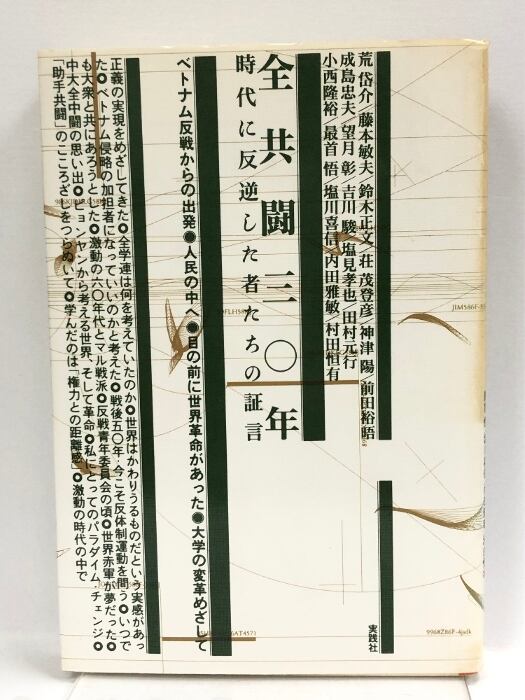 荒 岱介/藤本敏夫/鈴木正文/荘 茂登彦/神津 陽/前田裕晤
成島忠夫/望月 彰/吉川 駿/塩見孝也/田村元行
小西隆裕/最首 悟/塩川喜信/内田雅敏/村田恒有
全共闘三〇年
時代に反逆した者たちの証言
ベトナム反戦からの出発◉人民の中へ◉目の前に世界革命があった◉大学の変革めざして
正義の実現をめざしてきた◉全学連は何を考えていたのか◉世界はかわりうるものだという実感があっ
た◉ベトナム侵略の加担者になっていいのかと考えた◉戦後五〇年・今こそ反体制運動を問う◉いつで
も大衆と共にあろうとした◉激動の六〇年代とマル戦派◉反戦青年委員会の頃◉世界赤軍が夢だった◉
中大全中闘の思い出◉ピョンヤンから考える世界、そして革命◉私にとってのパラダイム・チェンジ◉
「助手共闘」のこころざしをつらぬいて◉学んだのは「権力との距離感」◉激動の時代の中で
実践社
JIM586F-8
9968Z86F-4jsdk